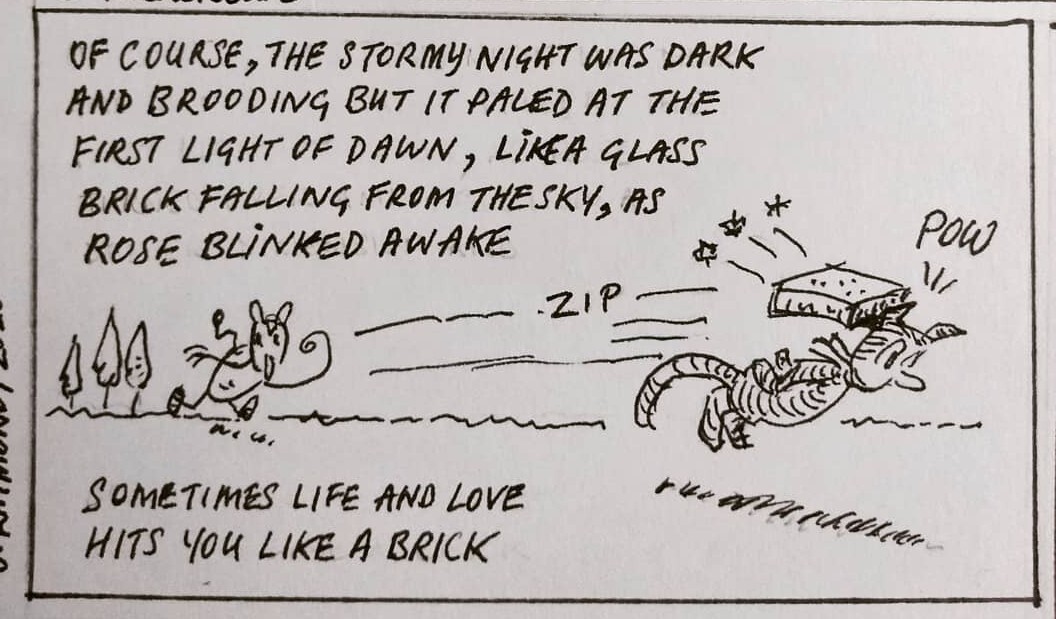 OF COURSE, THE STORMY NIGHT WAS DARK
AND BROODING BUT IT PALED AT THE
FIRST LIGHT OF DAWN, LIKE A GLASS
BRICK FALLING FROM THE SKY, AS
ROSE BLINKED AWAKE
POW
ZIP
SOMETIMES LIFE AND LOVE
HITS YOU LIKE A BRICK